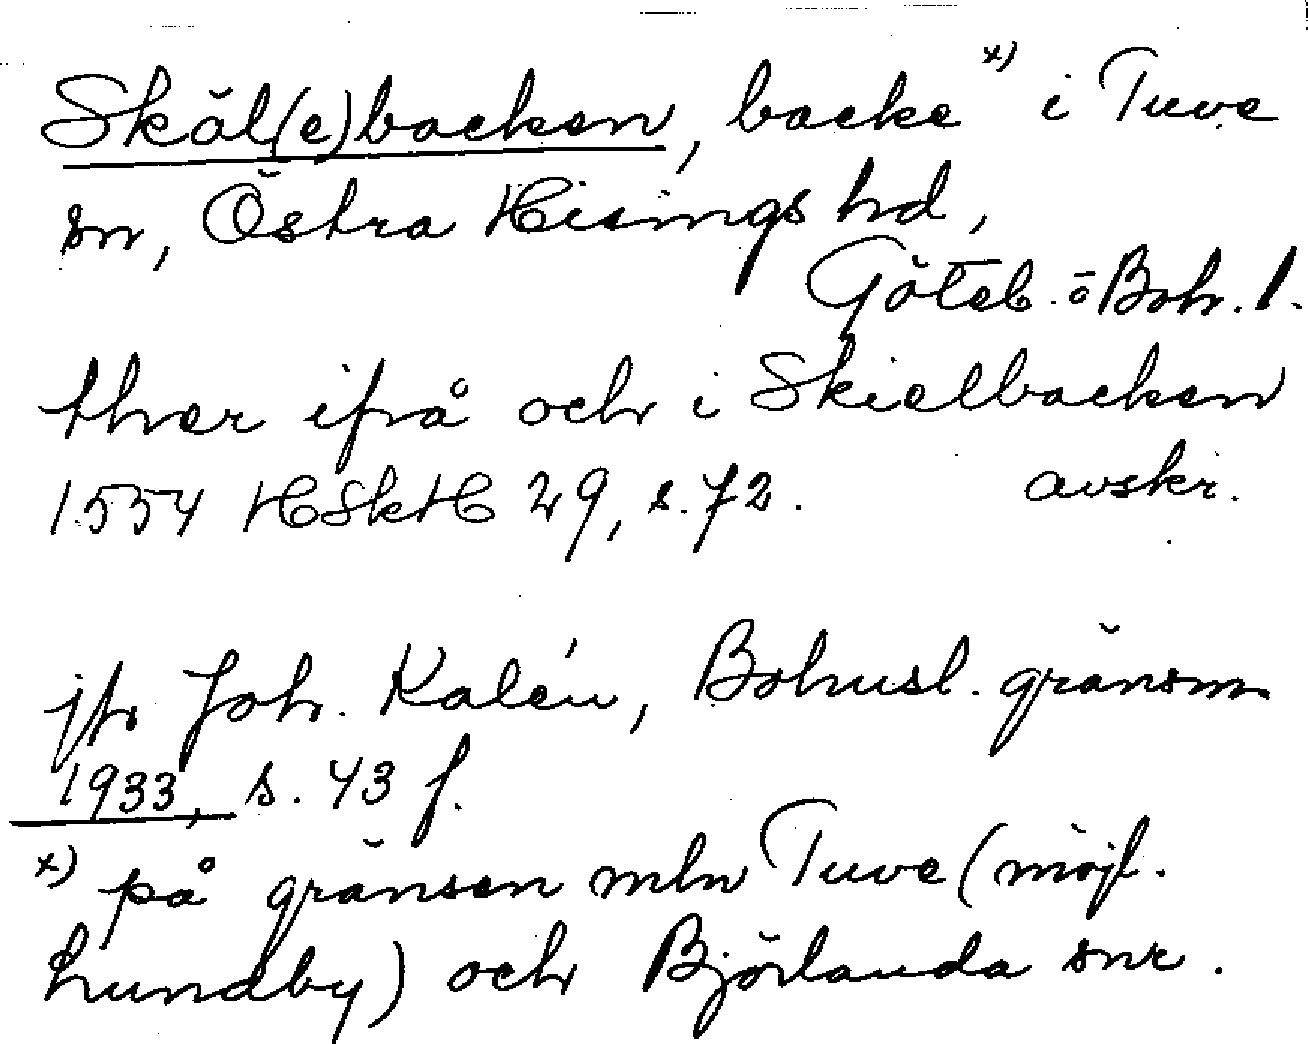 Skäl(e)backen, backe x) i Tuve
sn, Östra Hisings hd,
Göteb. o Boh. l.
ther ifrå och i Skielbacken
1554 HSkH 29, s. 72. avskr.
jfr Joh. Kalén, Bohusl. gränsm
1933, s. 43 f.
x) på gränsen mln Tuve (möjl.
Lundby) och Björlanda snr.